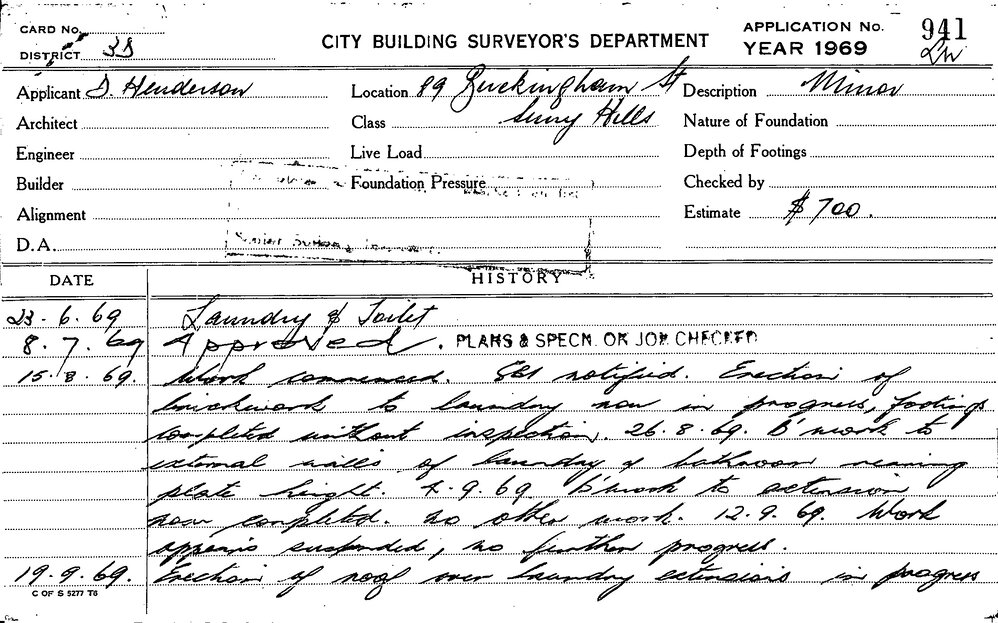 CARD No.
DISTRICT 3S
CITY BUILDING SURVEYOR'S DEPARTMENT
APPLICATION No. 941
YEAR 1969
Applicant D. Henderson
Location 89 Buckingham St
Description Minor
Architect
Class Surry Hills
Nature of Foundation
Engineer
Live Load
Depth of Footings
Builder
Foundation Pressure
Checked by
Alignment
Estimate $700.
D.A.
DATE
HISTORY
23.6.69 Laundry & Toilet
8.7.69 Approved. PLANS & SPECN. ON JOB CHECKED
15.8.69. Work commenced. SBI notified. Erection of
brickwork to laundry now in progress, footings
completed without inspection. 26.8.69. B'work to
external walls of laundry & bathroom nearing
plate height. 4.9.69 B'work to extension
now completed. no other work. 12.9.69. Work
appears suspended, no further progress.
19.9.69. Erection of roof over laundry extensions in progress
C OF S 5277 T6